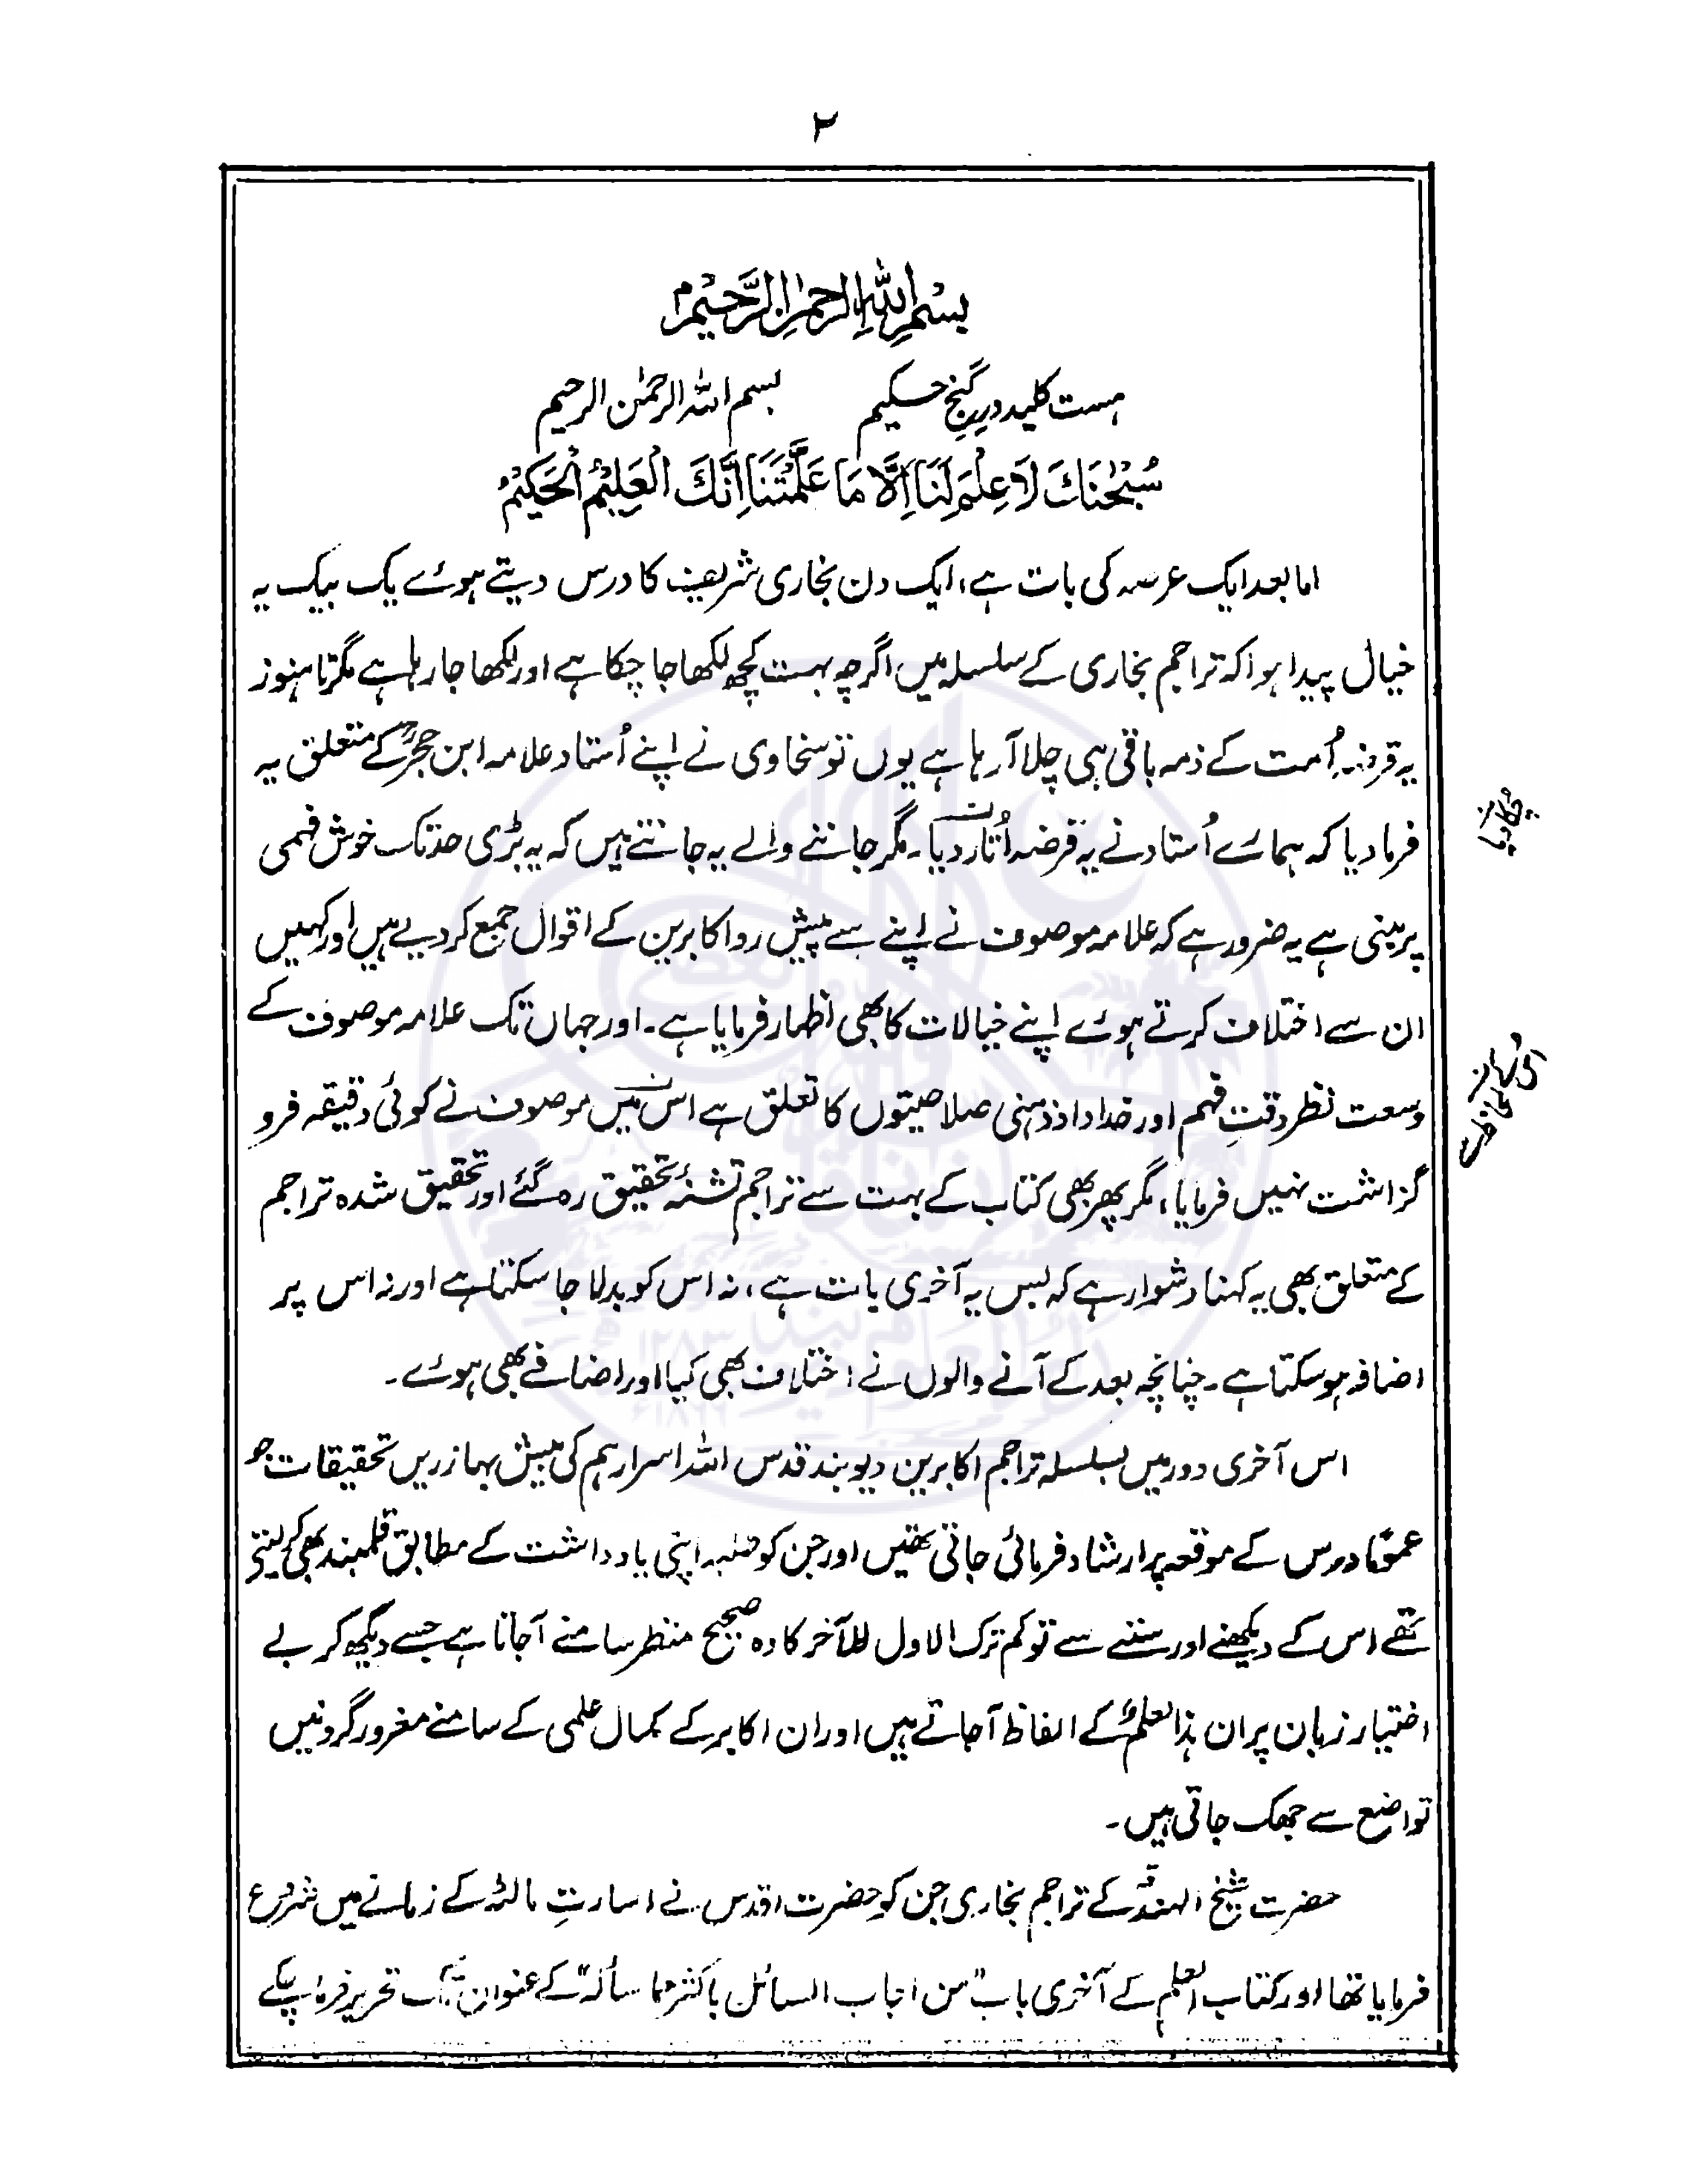 ۲
بِسْمِ اللّٰہِ الرَّحْمٰنِ الرَّحِیْمِ
ہست کلید درِ گنجِ حکیم بسم اللہ الرحمٰن الرحیم
سُبْحٰنَكَ لَا عِلْمَ لَنَا اِلَّا مَا عَلَّمْتَنَا اِنَّكَ الْعَلِیْمُ الْحَكِیْمُ
اما بعد ایک عرصہ کی بات ہے، ایک دن بخاری شریف کا درس دیتے ہوئے یک بیک یہ
خیال پیدا ہوا کہ تراجم بخاری کے سلسلہ میں اگرچہ بہت کچھ لکھا جا چکا ہے اور لکھا جا رہا ہے مگر تا ہنوز
یہ قرضہ اُمت کے ذمہ باقی ہی چلا آ رہا ہے یوں تو سخاوی نے اپنے اُستاد علامہ ابن حجرؒ کے متعلق یہ
فرما دیا کہ ہمارے اُستاد نے یہ قرضہ اُتار دیا۔ مگر جاننے والے یہ جانتے ہیں کہ یہ بڑی حد تک خوش فہمی
چکا دیا
پر مبنی ہے یہ ضرور ہے کہ علامہ موصوف نے اپنے سے پیش رو اکابرین کے اقوال جمع کر دیے ہیں اور کہیں
ان سے اختلاف کرتے ہوئے اپنے خیالات کا بھی اظہار فرمایا ہے۔ اور جہاں تک علامہ موصوف کے
وسعت نظر دقتِ فہم اور خداداد ذہنی صلاحیتوں کا تعلق ہے اس میں موصوف نے کوئی دقیقہ فرو
گزاشت نہیں فرمایا، مگر پھر بھی کتاب کے بہت سے تراجم تشنۂ تحقیق رہ گئے اور تحقیق شدہ تراجم
کے متعلق بھی یہ کہنا دشوار ہے کہ بس یہ آخری بات ہے، نہ اس کو بدلا جا سکتا ہے اور نہ اس پر
اضافہ ہو سکتا ہے۔ چنانچہ بعد کے آنے والوں نے اختلاف بھی کیا اور اضافے بھی ہوئے۔
اس آخری دور میں بسلسلہ تراجم اکابرین دیوبند قدس اللہ اسرارہم کی بیش بہا زریں تحقیقات جو
عمومًا درس کے موقعہ پر ارشاد فرمائی جاتی تھیں اور جن کو طلبہ اپنی یادداشت کے مطابق قلمبند بھی کر لیتے
تھے اس کے دیکھنے اور سننے سے تو کم ترک الاول للآخر کا وہ صحیح منظر سامنے آ جاتا ہے جسے دیکھ کر بے
اختیار زبان پر ان ہذا لعلم کے الفاظ آ جاتے ہیں اور ان اکابر کے کمال علمی کے سامنے مغرور گردنیں
تواضع سے جھک جاتی ہیں۔
حضرت شیخ الہندؒ کے تراجم بخاری جن کو حضرت اقدس نے اسارتِ مالٹہ کے زمانے میں شروع
فرمایا تھا اور کتاب العلم کے آخری باب "من اجاب السائل باکثر مما سألہ" کے عنوان تک تحریر فرما چکے